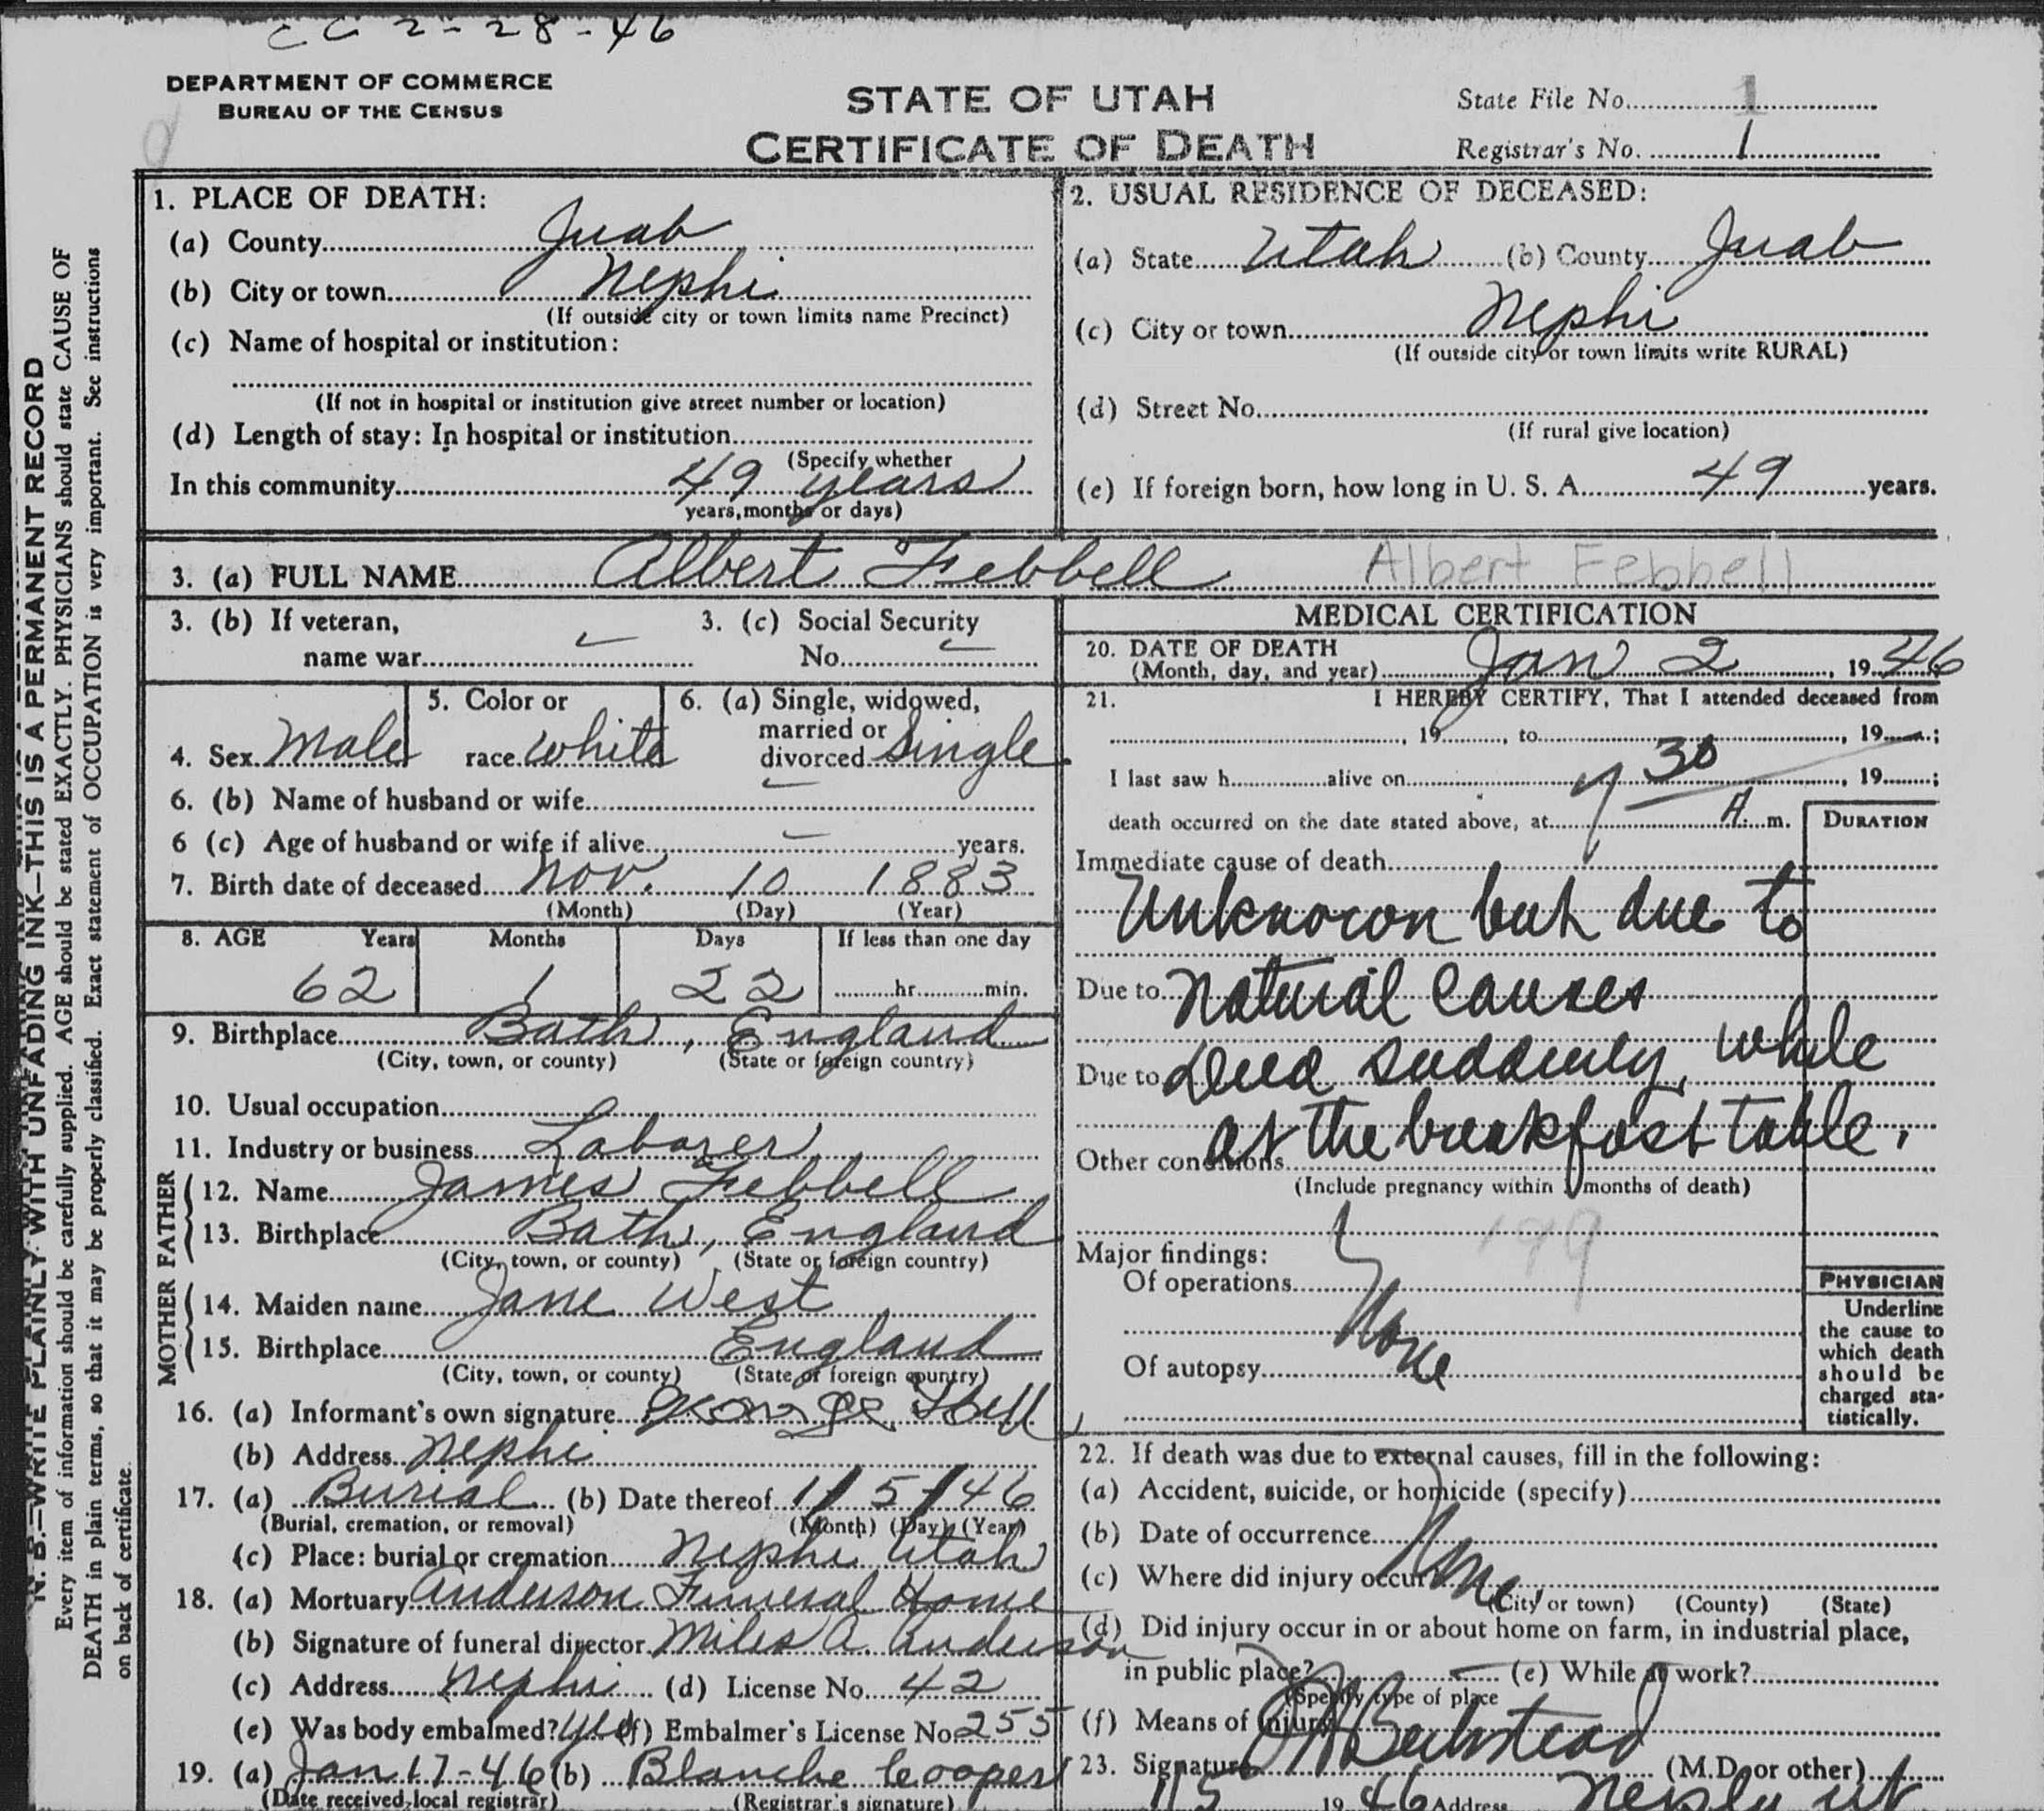 CC 2-28-46
DEPARTMENT OF COMMERCE
BUREAU OF THE CENSUS
STATE OF UTAH
CERTIFICATE OF DEATH
State File No. 1
Registrar's No. 1
N. B.—WRITE PLAINLY WITH UNFADING INK—THIS IS A PERMANENT RECORD
Every item of information should be carefully supplied. AGE should be stated EXACTLY. PHYSICIANS should state CAUSE OF
DEATH in plain terms, so that it may be properly classified. Exact statement of OCCUPATION is very important. See instructions
on back of certificate.
1. PLACE OF DEATH:
(a) County Juab
(b) City or town Nephi
(If outside city or town limits name Precinct)
(c) Name of hospital or institution:
(If not in hospital or institution give street number or location)
(d) Length of stay: In hospital or institution
(Specify whether
In this community 49 years
years, months or days)
2. USUAL RESIDENCE OF DECEASED:
(a) State Utah (b) County Juab
(c) City or town Nephi
(If outside city or town limits write RURAL)
(d) Street No.
(If rural give location)
(e) If foreign born, how long in U. S. A. 49 years.
3. (a) FULL NAME Albert Febbell Albert Febbell
3. (b) If veteran,
name war
3. (c) Social Security
No.
4. Sex Male
5. Color or
race White
6. (a) Single, widowed,
married or
divorced Single
6. (b) Name of husband or wife
6 (c) Age of husband or wife if alive years.
7. Birth date of deceased Nov. 10 1883
(Month) (Day) (Year)
8. AGE Years Months Days If less than one day
62 1 22 hr. min.
9. Birthplace Bath, England
(City, town, or county) (State or foreign country)
10. Usual occupation
11. Industry or business Laborer
FATHER
12. Name James Febbell
13. Birthplace Bath, England
(City, town, or county) (State or foreign country)
MOTHER
14. Maiden name Jane West
15. Birthplace England
(City, town, or county) (State or foreign country)
16. (a) Informant's own signature George
(b) Address Nephi
17. (a) Burial (b) Date thereof 1/5/46
(Burial, cremation, or removal) (Month) (Day) (Year)
(c) Place: burial or cremation Nephi Utah
18. (a) Mortuary Anderson Funeral Home
(b) Signature of funeral director Miles A. Anderson
(c) Address Nephi (d) License No. 42
(e) Was body embalmed? Yes (f) Embalmer's License No. 255
19. (a) Jan 17-46 (b) Blanche Cooper
(Date received local registrar) (Registrar's signature)
MEDICAL CERTIFICATION
20. DATE OF DEATH
(Month, day, and year) Jan 2, 1946
21. I HEREBY CERTIFY, That I attended deceased from
, 19 , to , 19 ;
I last saw h alive on , 19 ;
death occurred on the date stated above, at 7 30 A. m.
DURATION
Immediate cause of death
Unknown but due to
Due to Natural Causes
Due to Died suddenly, while
at the breakfast table.
Other conditions
(Include pregnancy within 3 months of death)
199
Major findings:
Of operations
None
Of autopsy
PHYSICIAN
Underline
the cause to
which death
should be
charged sta-
tistically.
22. If death was due to external causes, fill in the following:
(a) Accident, suicide, or homicide (specify)
(b) Date of occurrence
(c) Where did injury occur? None
(City or town) (County) (State)
(d) Did injury occur in or about home on farm, in industrial place,
in public place? (e) While at work?
(Specify type of place
(f) Means of injury
23. Signature (M.D. or other)
1/5 1946 Address Nephi Ut